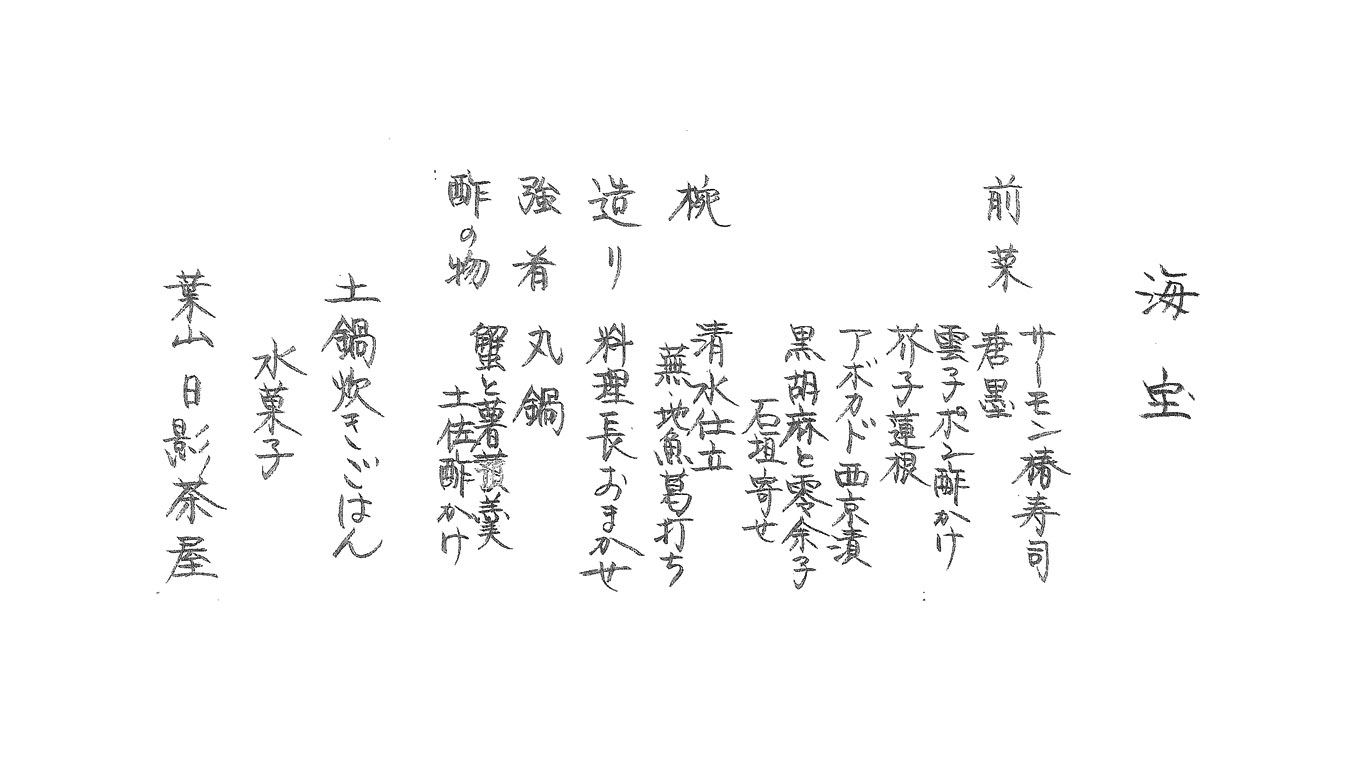 海宝
前菜
サーモン椿寿司
唐墨
雲子ポン酢かけ
芥子蓮根
アボカド西京漬
黒胡麻と零余子
石垣寄せ
椀
清水仕立
蕪、地魚葛打ち
造り 料理長おまかせ
強肴 丸鍋
酢の物 蟹と薯蕷羹
土佐酢かけ
土鍋炊きごはん
水菓子
葉山 日影茶屋